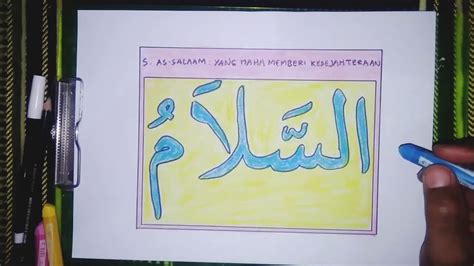 5. AS-SALAAM : YANG MAHA MEMBERI KESEJAHTERAAN
السَّلَامُ